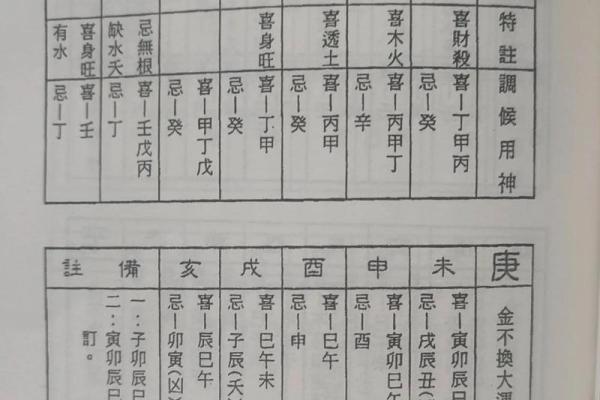 特註
喜財殺
喜木火
喜透土
喜身旺
忌無根
缺水夭
喜身旺
有水
調候用神
喜—丁甲丙
忌—癸
喜—丙甲丁
忌—辛
喜—丙甲
忌—癸
喜—丁甲
忌—癸
喜—甲丁戊
忌—癸
喜—壬戊丙
忌—丁
喜—壬
忌—丁
庚
金不換大運
未
喜—寅卯辰巳
忌—戌辰丑(
申
喜—寅卯巳午
忌—酉
酉
喜—巳午
忌—申
戌
喜—巳午未
忌—子辰(夭
亥
喜—辰巳午
忌—卯寅(凶
備註
一：子卯辰巳
二：寅卯辰巳
訂。